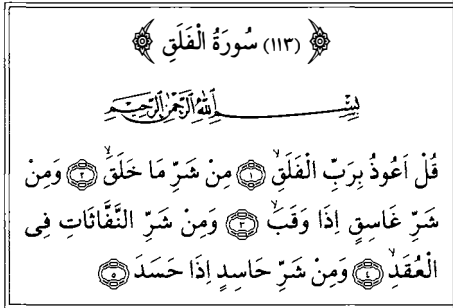 (١١٣) سُورَةُ الْفَلَقِ
بِسْمِ اللّٰهِ الرَّحْمٰنِ الرَّحِيمِ
قُلْ اَعُوذُ بِرَبِّ الْفَلَقِۙ ١ مِنْ شَرِّ مَا خَلَقَۙ ٢ وَمِنْ
شَرِّ غَاسِقٍ اِذَا وَقَبَۙ ٣ وَمِنْ شَرِّ النَّفَّاثَاتِ فِى
الْعُقَدِۙ ٤ وَمِنْ شَرِّ حَاسِدٍ اِذَا حَسَدَ ٥